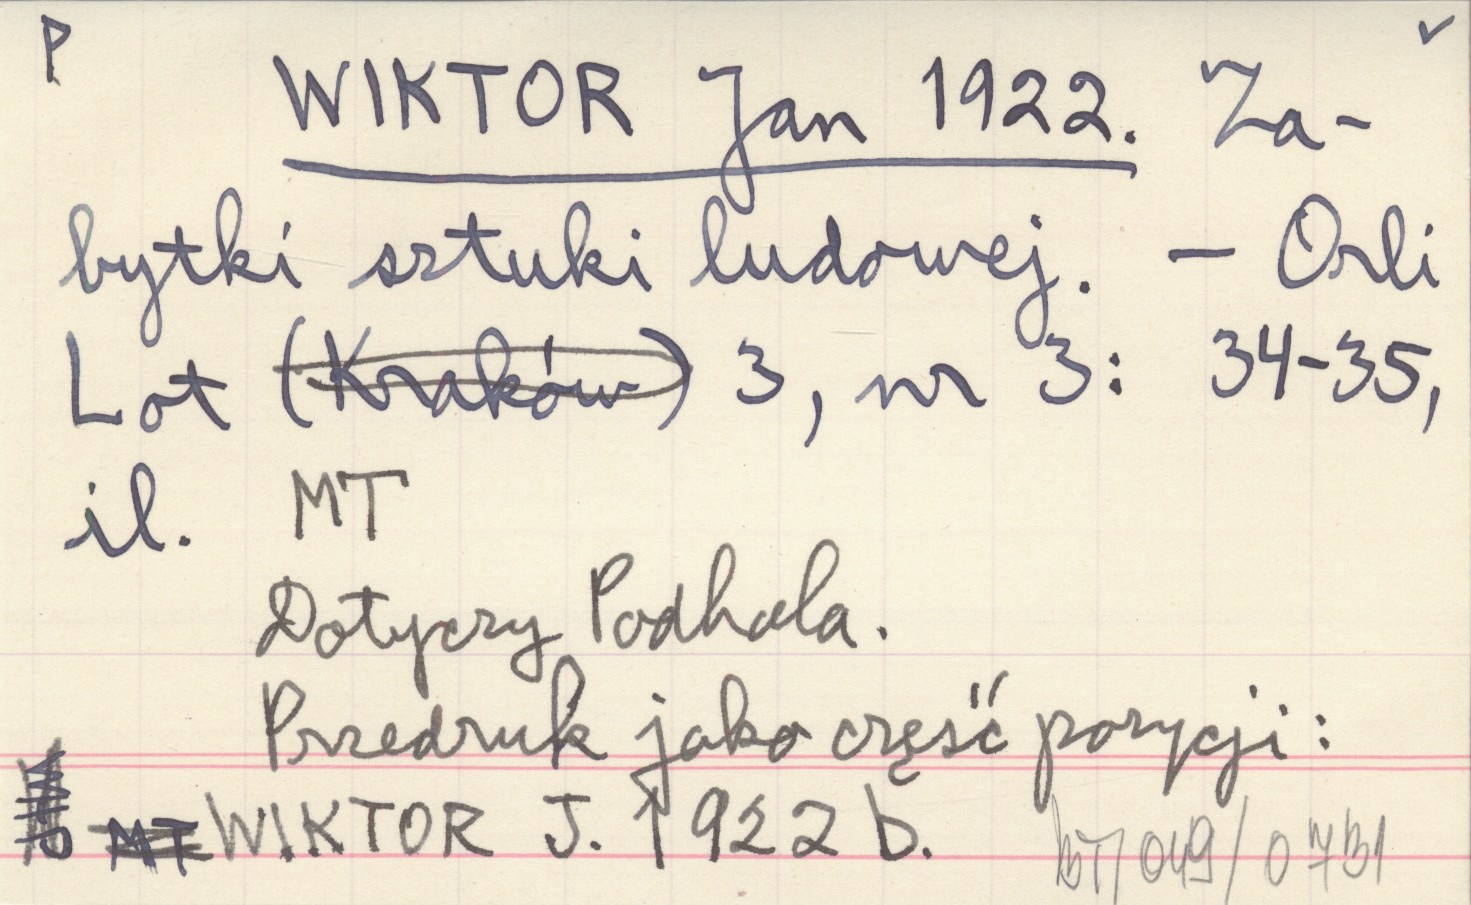 P
WIKTOR Jan 1922. Za-
bytki sztuki ludowej. - Orli
Lot (Kraków) 3, nr 3: 34-35,
il. MT
Dotyczy Podhala.
Przedruk jako część pozycji:
MT WIKTOR J. 1922 b.